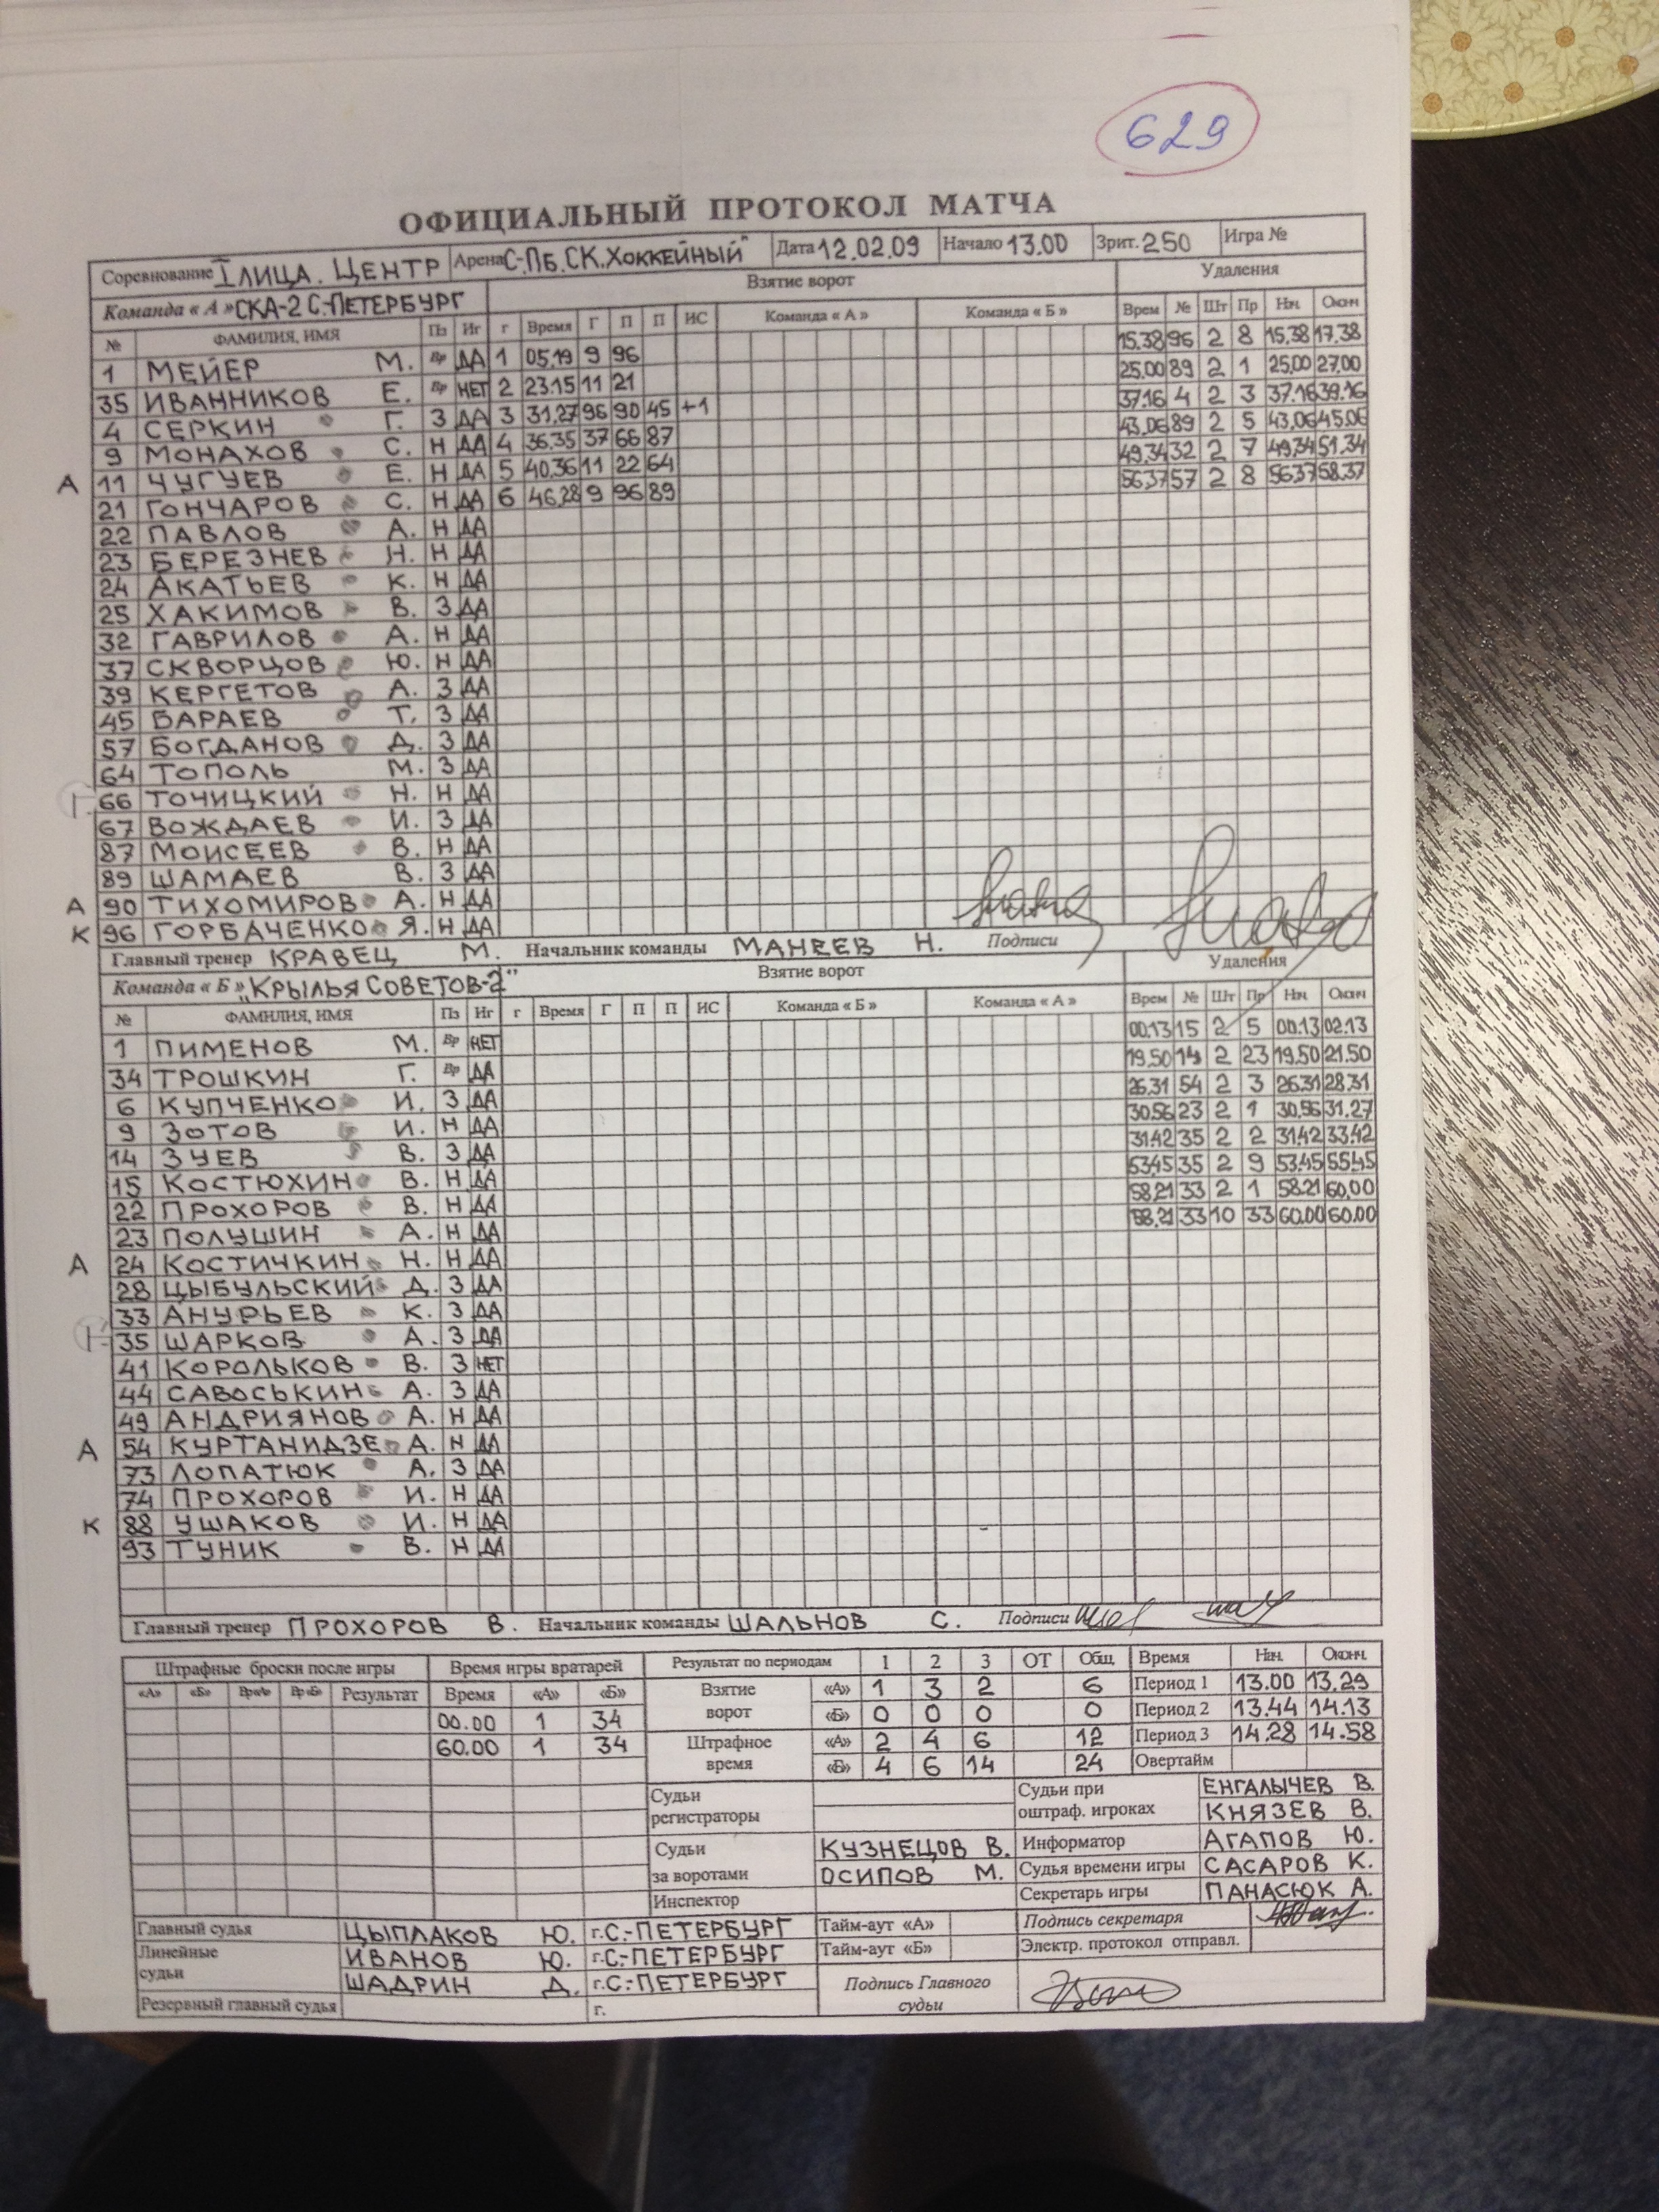 629
ОФИЦИАЛЬНЫЙ ПРОТОКОЛ МАТЧА
Соревнование I ЛИГА. ЦЕНТР Арена С-ПБ. СК. ХОККЕЙНЫЙ" Дата 12.02.09 Начало 13.00 Зрит. 250 Игра №
Команда « А » СКА-2 С-ПЕТЕРБУРГ Взятие ворот Удаления
№ ФАМИЛИЯ, ИМЯ Пз Иг г Время Г П П ИС Команда « А » Команда « Б » Врем № Шт Пр Нач. Оконч
1 МЕЙЕР М. Вр ДА 1 05.19 9 96 15.38 96 2 8 15.38 17.38
35 ИВАННИКОВ Е. Вр НЕТ 2 23.15 11 21 25.00 89 2 1 25.00 27.00
4 СЕРКИН Г. З ДА 3 31.27 96 90 45 +1 37.16 4 2 3 37.16 39.16
9 МОНАХОВ С. Н ДА 4 36.35 37 66 87 43.06 89 2 5 43.06 45.06
А 11 ЧУГУЕВ Е. Н ДА 5 40.36 11 22 64 49.34 32 2 7 49.34 51.34
21 ГОНЧАРОВ С. Н ДА 6 46.28 9 96 89 56.37 57 2 8 56.37 58.37
22 ПАВЛОВ А. Н ДА
23 БЕРЕЗНЕВ Н. Н ДА
24 АКАТЬЕВ К. Н ДА
25 ХАКИМОВ В. З ДА
32 ГАВРИЛОВ А. Н ДА
37 СКВОРЦОВ Ю. Н ДА
39 КЕРГЕТОВ А. З ДА
45 БАРАЕВ Т. З ДА
57 БОГДАНОВ Д. З ДА
64 ТОПОЛЬ М. З ДА
66 ТОЧИЦКИЙ Н. Н ДА
67 ВОЖДАЕВ И. З ДА
87 МОИСЕЕВ В. Н ДА
89 ШАМАЕВ В. З ДА
А 90 ТИХОМИРОВ А. Н ДА
К 96 ГОРБАЧЕНКО Я. Н ДА
Главный тренер КРАВЕЦ М. Начальник команды МАНЕЕВ Н. Подписи
Команда « Б » "КРЫЛЬЯ СОВЕТОВ-2" Взятие ворот Удаления
№ ФАМИЛИЯ, ИМЯ Пз Иг г Время Г П П ИС Команда « Б » Команда « А » Врем № Шт Пр Нач. Оконч
1 ПИМЕНОВ М. Вр НЕТ 00.13 15 2 5 00.13 02.13
34 ТРОШКИН Г. Вр ДА 19.50 14 2 23 19.50 21.50
6 КУПЧЕНКО И. З ДА 26.31 54 2 3 26.31 28.31
9 ЗОТОВ И. Н ДА 30.56 23 2 1 30.56 31.27
14 ЗУЕВ В. З ДА 31.42 35 2 2 31.42 33.42
15 КОСТЮХИН В. Н ДА 53.45 35 2 9 53.45 55.45
22 ПРОХОРОВ В. Н ДА 58.21 33 2 1 58.21 60.00
23 ПОЛУШИН А. Н ДА 58.21 33 10 33 60.00 60.00
А 24 КОСТИЧКИН Н. Н ДА
28 ЦЫБУЛЬСКИЙ Д. З ДА
33 АНУРЬЕВ К. З ДА
35 ШАРКОВ А. З ДА
41 КОРОЛЬКОВ В. З НЕТ
44 САВОСЬКИН А. З ДА
49 АНДРИЯНОВ А. Н ДА
А 54 КУРТАНИДЗЕ А. Н ДА
73 ЛОПАТЮК А. З ДА
74 ПРОХОРОВ И. Н ДА
К 88 УШАКОВ И. Н ДА
93 ТУНИК В. Н ДА
Главный тренер ПРОХОРОВ В. Начальник команды ШАЛЬНОВ С. Подписи
Штрафные броски после игры Время игры вратарей Результат по периодам 1 2 3 ОТ Общ. Время Нач. Оконч.
«А» «Б» Вр«А» Вр«Б» Результат Время «А» «Б» Взятие ворот «А» 1 3 2 6 Период 1 13.00 13.29
00.00 1 34 «Б» 0 0 0 0 Период 2 13.44 14.13
60.00 1 34 Штрафное время «А» 2 4 6 12 Период 3 14.28 14.58
«Б» 4 6 14 24 Овертайм
Судьи регистраторы Судьи при оштраф. игроках ЕНГАЛЫЧЕВ В.
КНЯЗЕВ В.
Судьи за воротами КУЗНЕЦОВ В. Информатор АГАПОВ Ю.
ОСИПОВ М. Судья времени игры САСАРОВ К.
Инспектор Секретарь игры ПАНАСЮК А.
Главный судья ЦЫПЛАКОВ Ю. г.С.-ПЕТЕРБУРГ Тайм-аут «А» Подпись секретаря
Линейные судьи ИВАНОВ Ю. г.С-ПЕТЕРБУРГ Тайм-аут «Б» Электр. протокол отправл.
ШАДРИН Д. г.С-ПЕТЕРБУРГ Подпись Главного судьи
Резервный главный судья г.